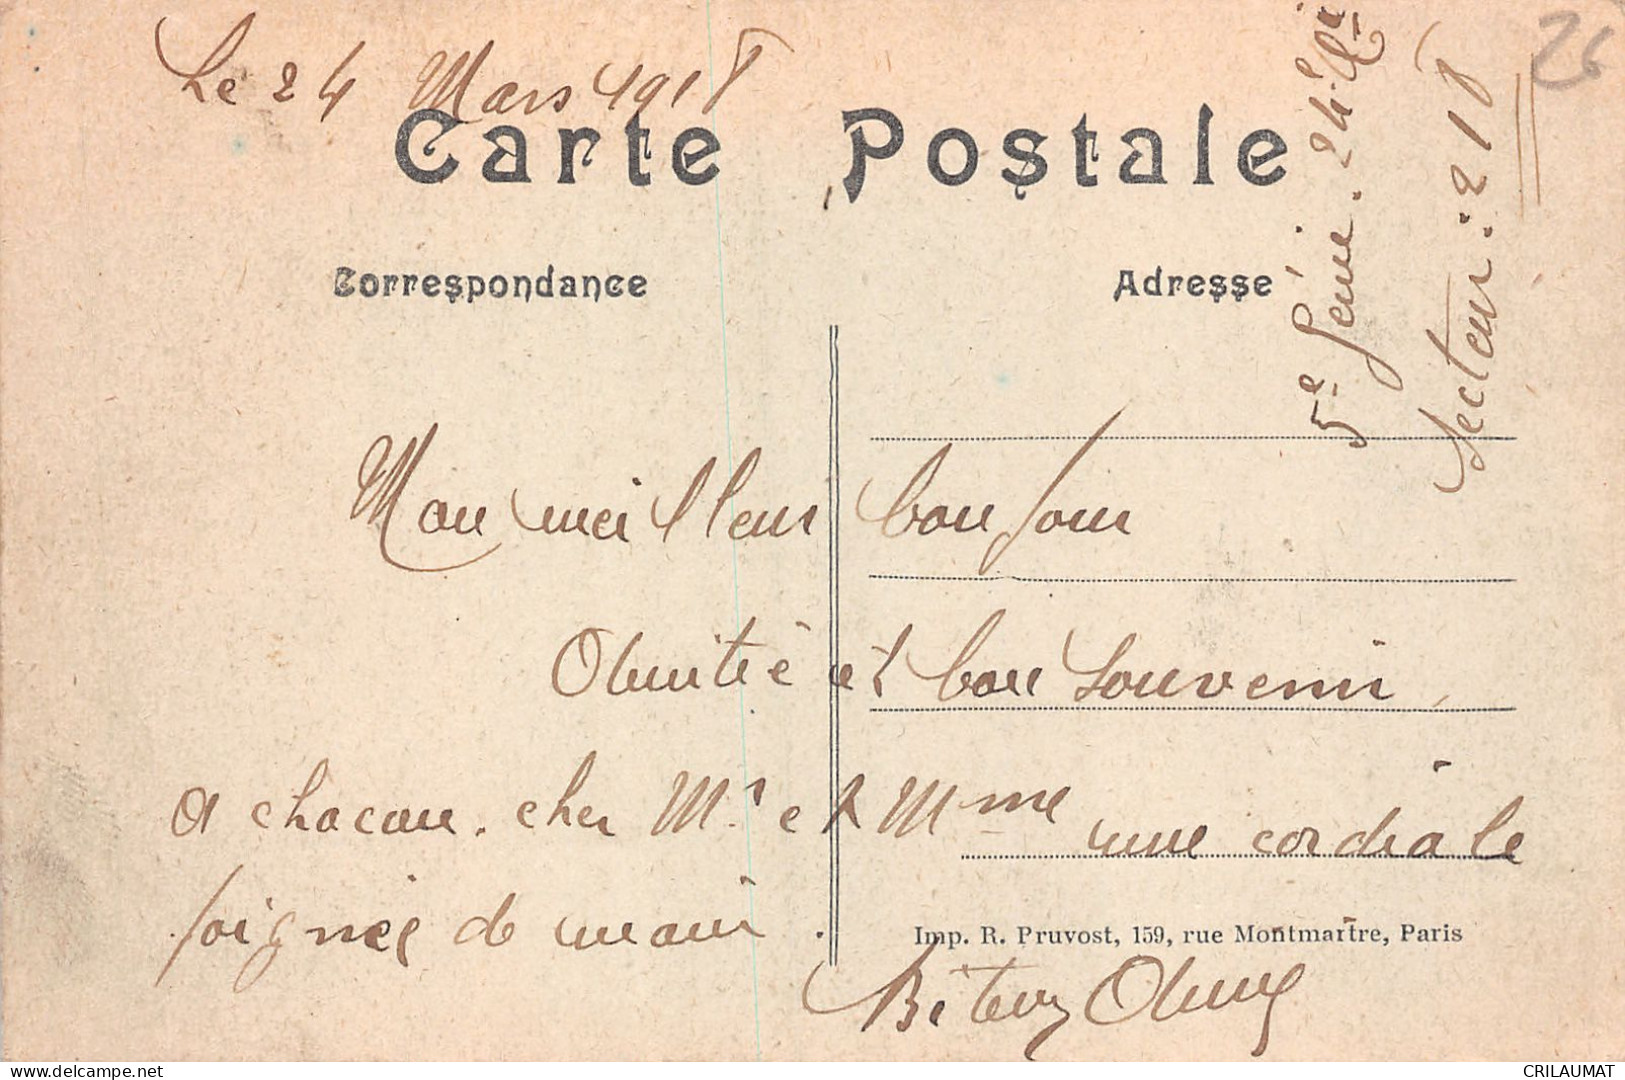 Le 24 Mars 1918
26
Carte Postale
Correspondance
Adresse
5e Génie. 24e Cie
Secteur : 218
Mon meilleur bonjour
Amitié et bon souvenir
a chacun. cher Mr. et Mme une cordiale
poignieé de main.
Imp. R. Pruvost, 159, rue Montmartre, Paris
CRILAUMAT